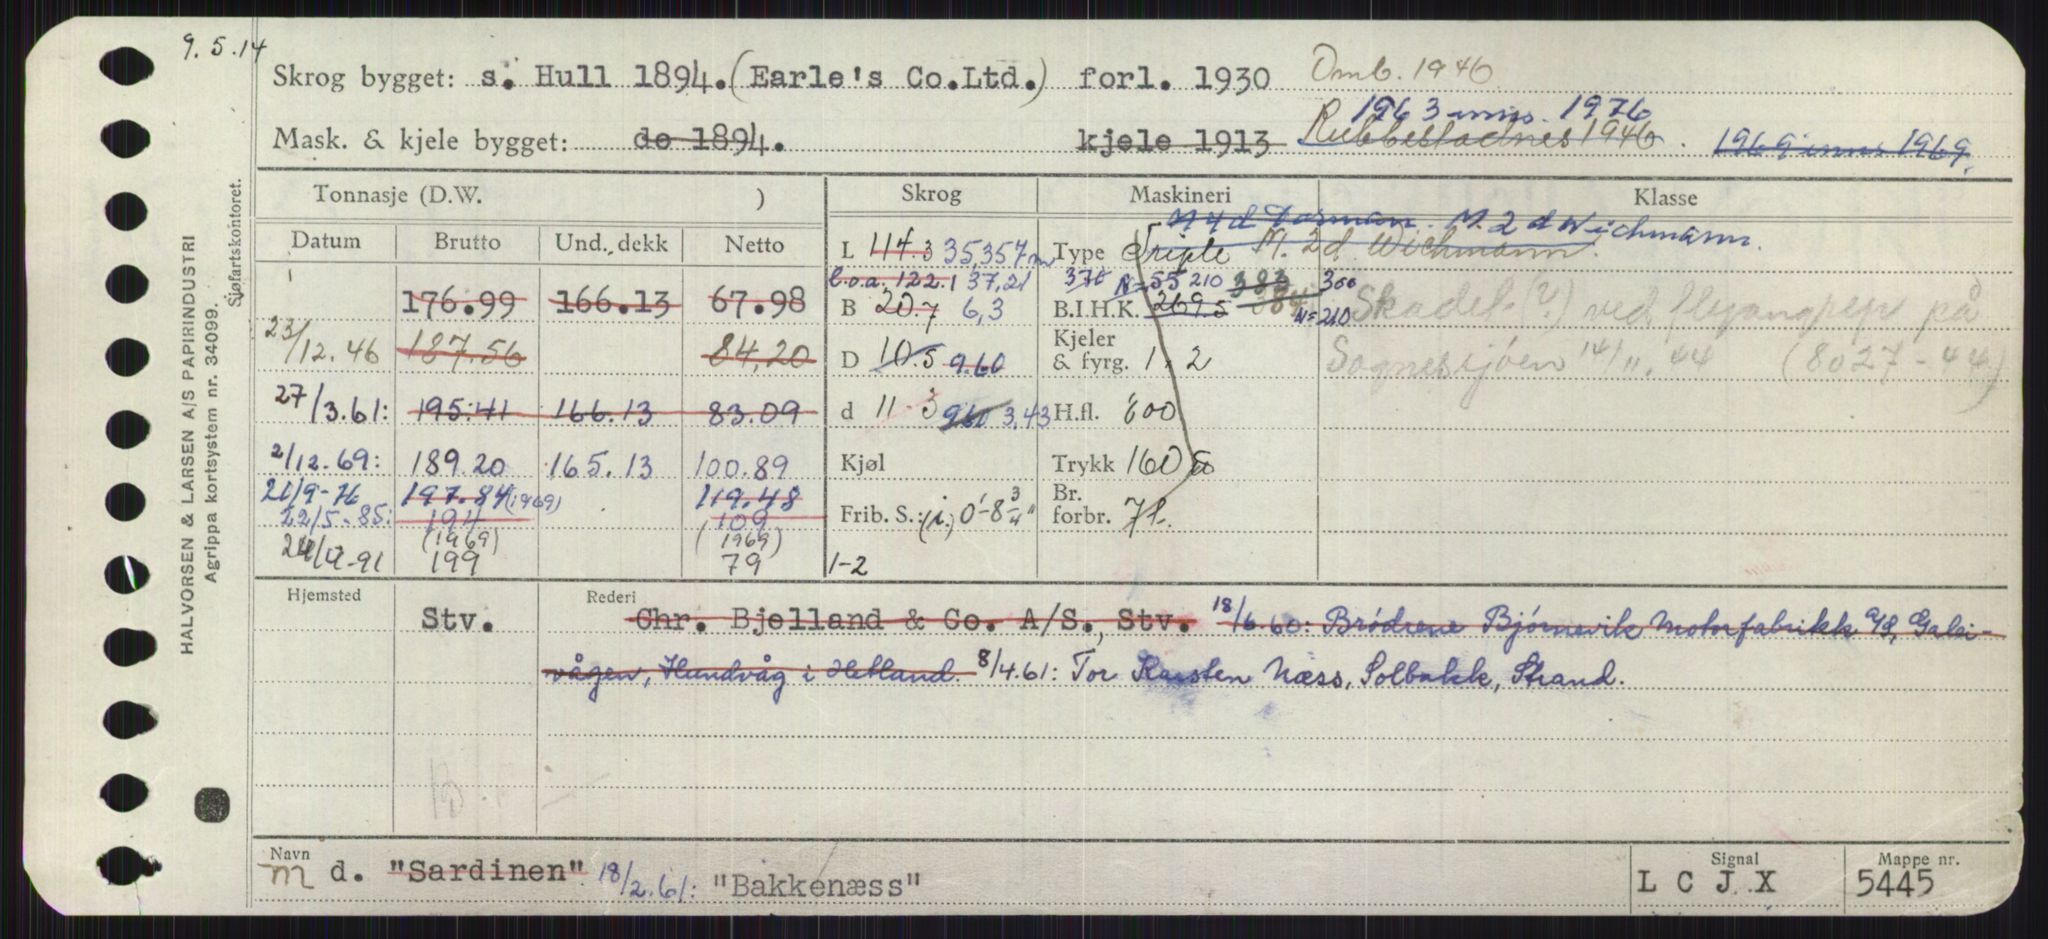 9.5.14
Skrog bygget: s. Hull 1894. (Earle's Co.Ltd.) forl. 1930 Omb. 1946
1963 inns. 1976
Mask. & kjele bygget: do 1894. kjele 1913 Rubbestadnes 1946. 1969 inns 1969.
Tonnasje (D.W. ) Skrog Maskineri Klasse
Datum Brutto Und. dekk Netto
M 2 d Wichmann.
L 114.3 35,357 m Type Triple M. 2 d. Wichmann.
l.o.a. 122.1 37,21 370 N=55 210 383 300
176.99 166.13 67.98 B 20.7 6,3 B.I.H.K. 269.5 384 N=210 Skadet (?) ved flyangrep på
23/12.46 187.56 84,20 D 10.5 9.60 Kjeler & fyrg. 1, 2 Sognesjöen 14/11.44 (8027-44)
27/3.61: 195.41 166.13 83.09 d 11 3 960 3,43 H.fl. 600
2/12.69: 189.20 165.13 100.89 Kjøl Trykk 160
21/9-76 197.84 (1969) 119.48 Frib. S.: (i.) 0'-8 3/4" Br. forbr. 7 t.
22/5-85: 194 109
(1969) (1969)
-91 199 79 1-2
Hjemsted Rederi
Stv. Chr. Bjelland & Co. A/S., Stv. 18/6.60: Brödrene Bjørnevik Motorfabrikk A/S, Galsi-
vågen, Hundvåg i Hetland. 8/4.61: Tor Karsten Næss, Solbakk, Strand.
Navn Signal Mappe nr.
m d. "Sardinen" 18/2.61: "Bakkenæss" L C J X 5445
HALVORSEN & LARSEN A/S PAPIRINDUSTRI
Agrippa kortsystem nr. 34099.
Sjøfartskontoret.